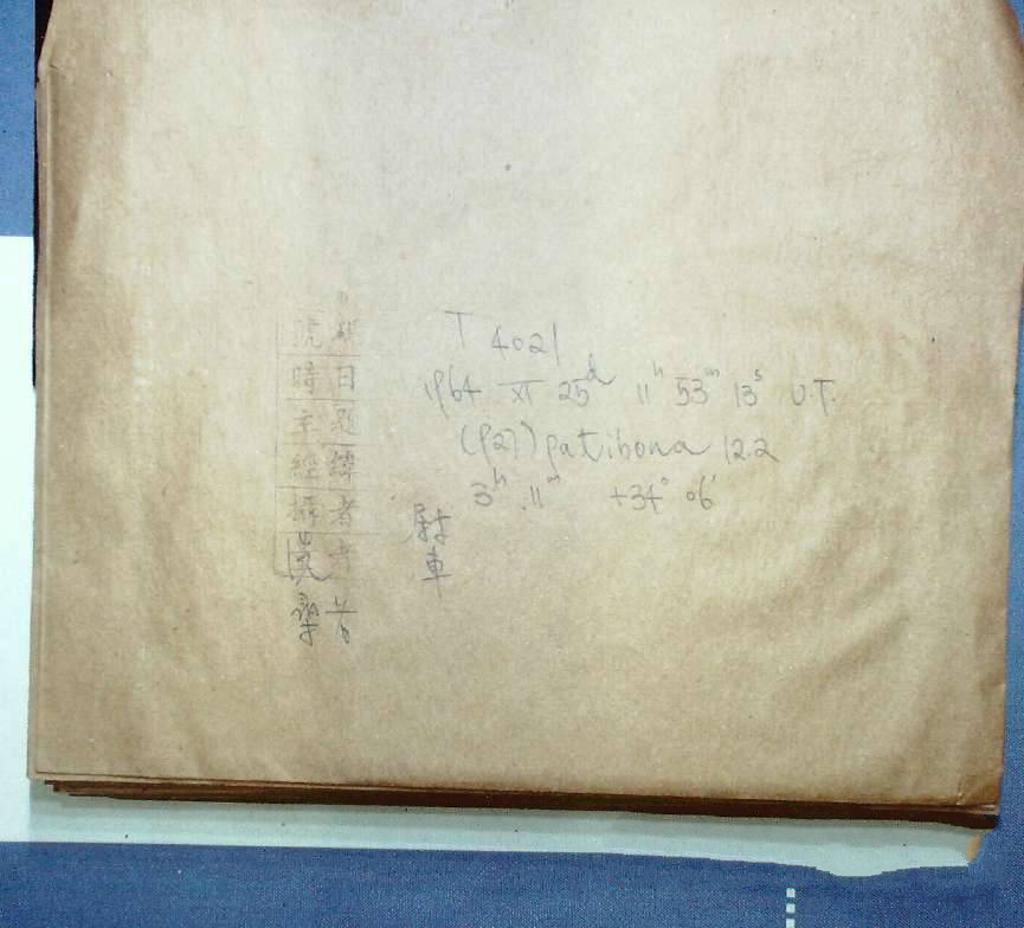 號 碼
時 日
主 題
經 緯
攝 者
T 4021
1964 XI 25d 11h 53m 13s U.T.
(927) ratibona 12.2
3h 11m +34° 06'